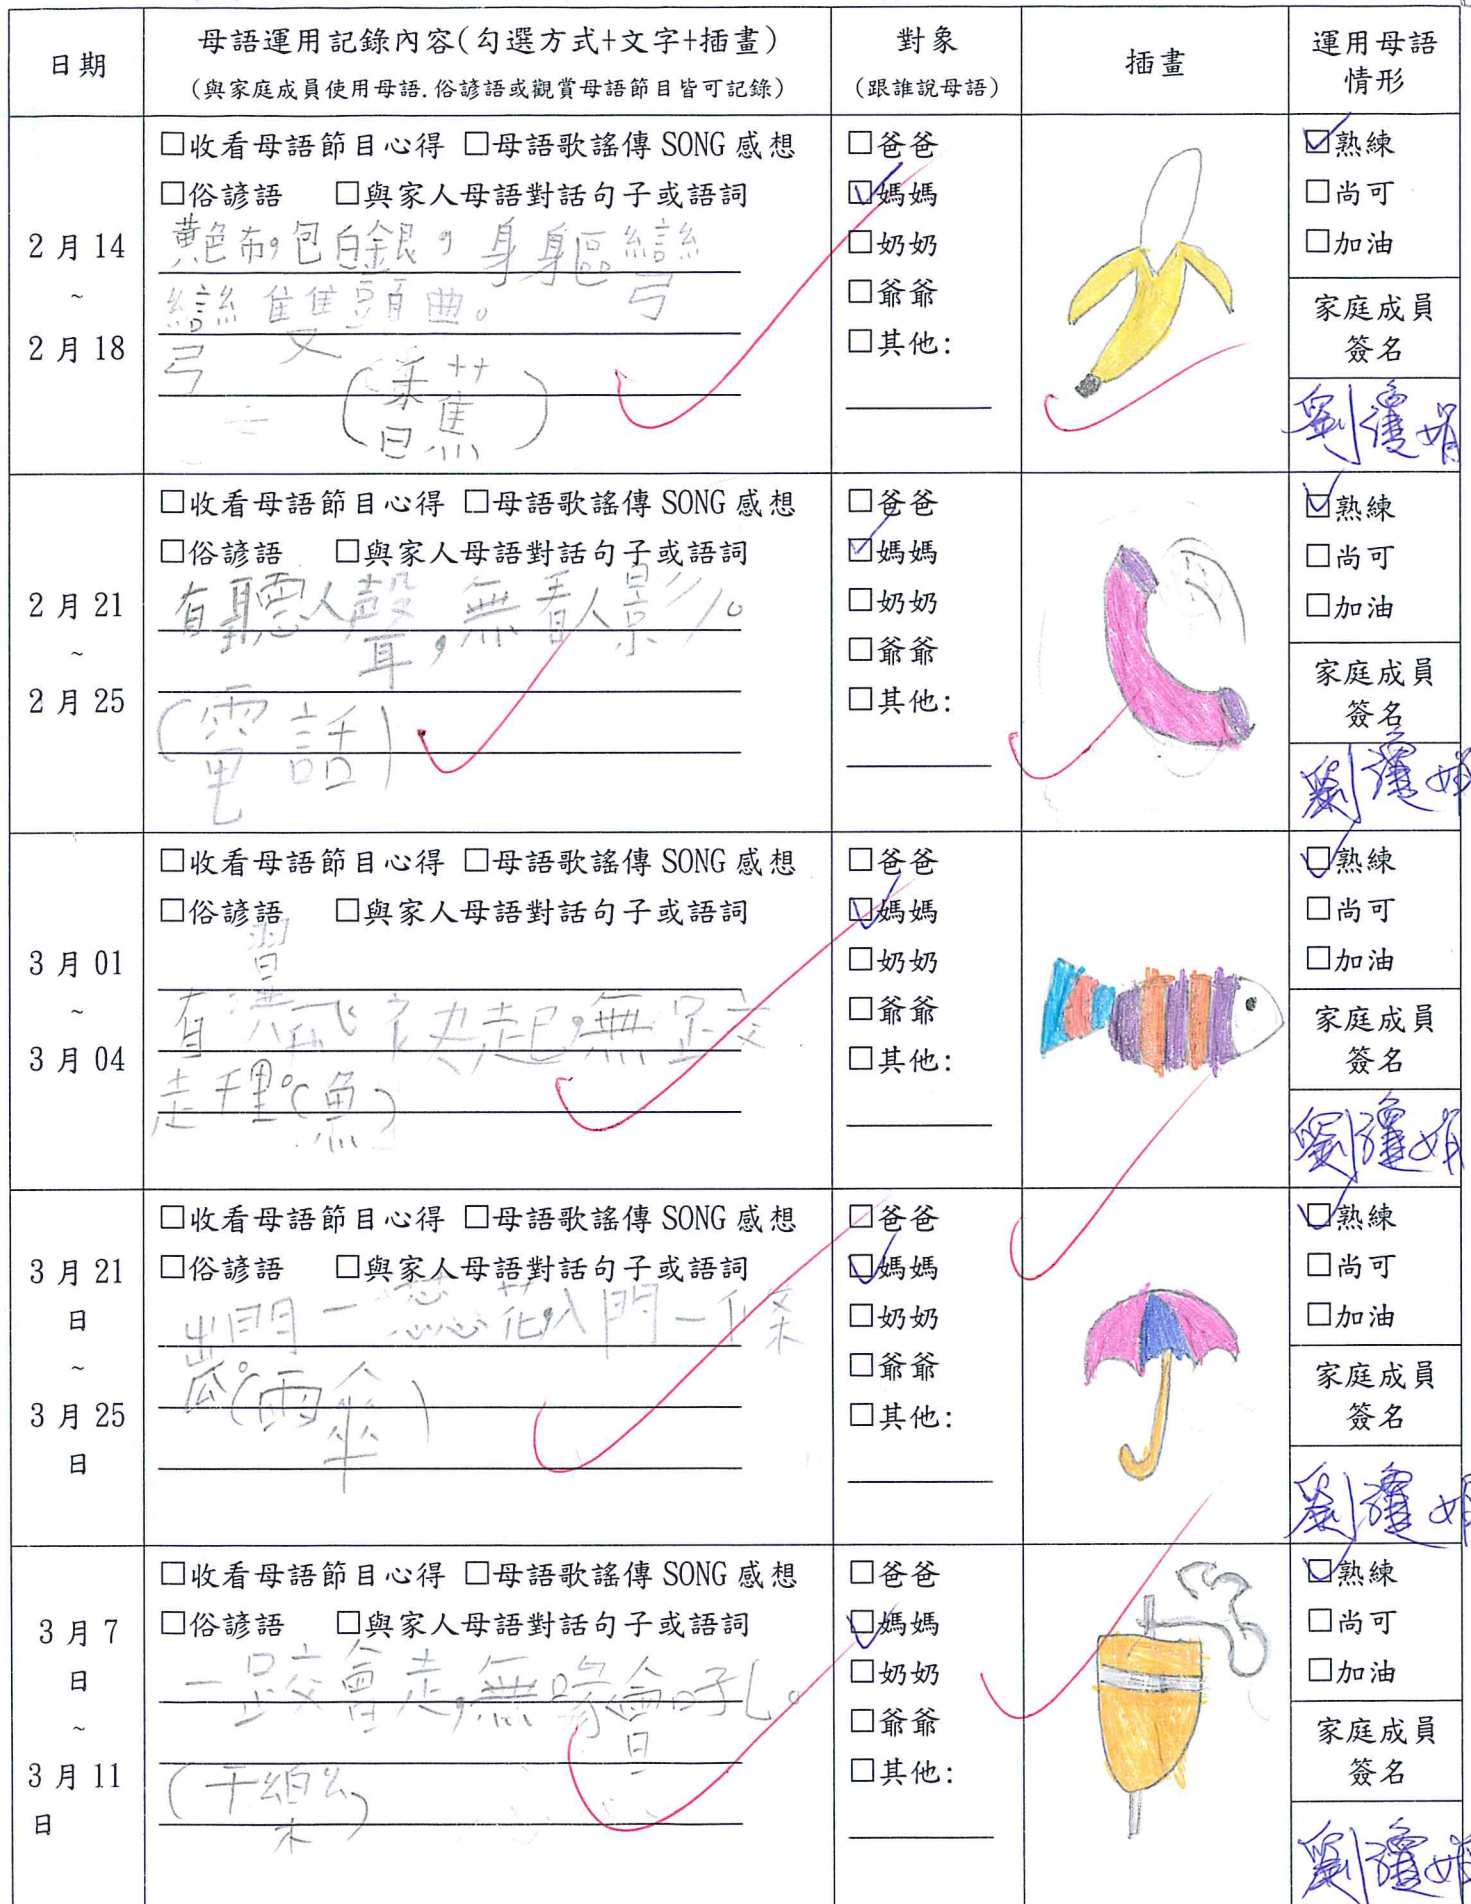 日期
母語運用記錄內容(勾選方式+文字+插畫)
(與家庭成員使用母語.俗諺語或觀賞母語節目皆可記錄)
對象
(跟誰說母語)
插畫
運用母語
情形
2月14
~
2月18
□收看母語節目心得 □母語歌謠傳 SONG 感想
□俗諺語 □與家人母語對話句子或語詞
黃色布,包白銀,身軀彎
彎雙頭曲。
蕉
□爸爸
☑媽媽
□奶奶
□爺爺
□其他:
☑熟練
□尚可
□加油
家庭成員
簽名
2月21
~
2月25
□收看母語節目心得 □母語歌謠傳 SONG 感想
□俗諺語 □與家人母語對話句子或語詞
有聽人聲,無看人影。
(電話)
□爸爸
☑媽媽
□奶奶
□爺爺
□其他:
☑熟練
□尚可
□加油
家庭成員
簽名
3月01
~
3月04
□收看母語節目心得 □母語歌謠傳 SONG 感想
□俗諺語 □與家人母語對話句子或語詞
有 飛 起,無跤
走 。(魚)
□爸爸
☑媽媽
□奶奶
□爺爺
□其他:
☑熟練
□尚可
□加油
家庭成員
簽名
3月21
日
~
3月25
日
□收看母語節目心得 □母語歌謠傳 SONG 感想
□俗諺語 □與家人母語對話句子或語詞
出門一蕊花,入門一條
瓜。(雨傘)
□爸爸
☑媽媽
□奶奶
□爺爺
□其他:
☑熟練
□尚可
□加油
家庭成員
簽名
3月7
日
~
3月11
日
□收看母語節目心得 □母語歌謠傳 SONG 感想
□俗諺語 □與家人母語對話句子或語詞
一跤會走,無喙會吼。
(干樂)
□爸爸
☑媽媽
□奶奶
□爺爺
□其他:
☑熟練
□尚可
□加油
家庭成員
簽名